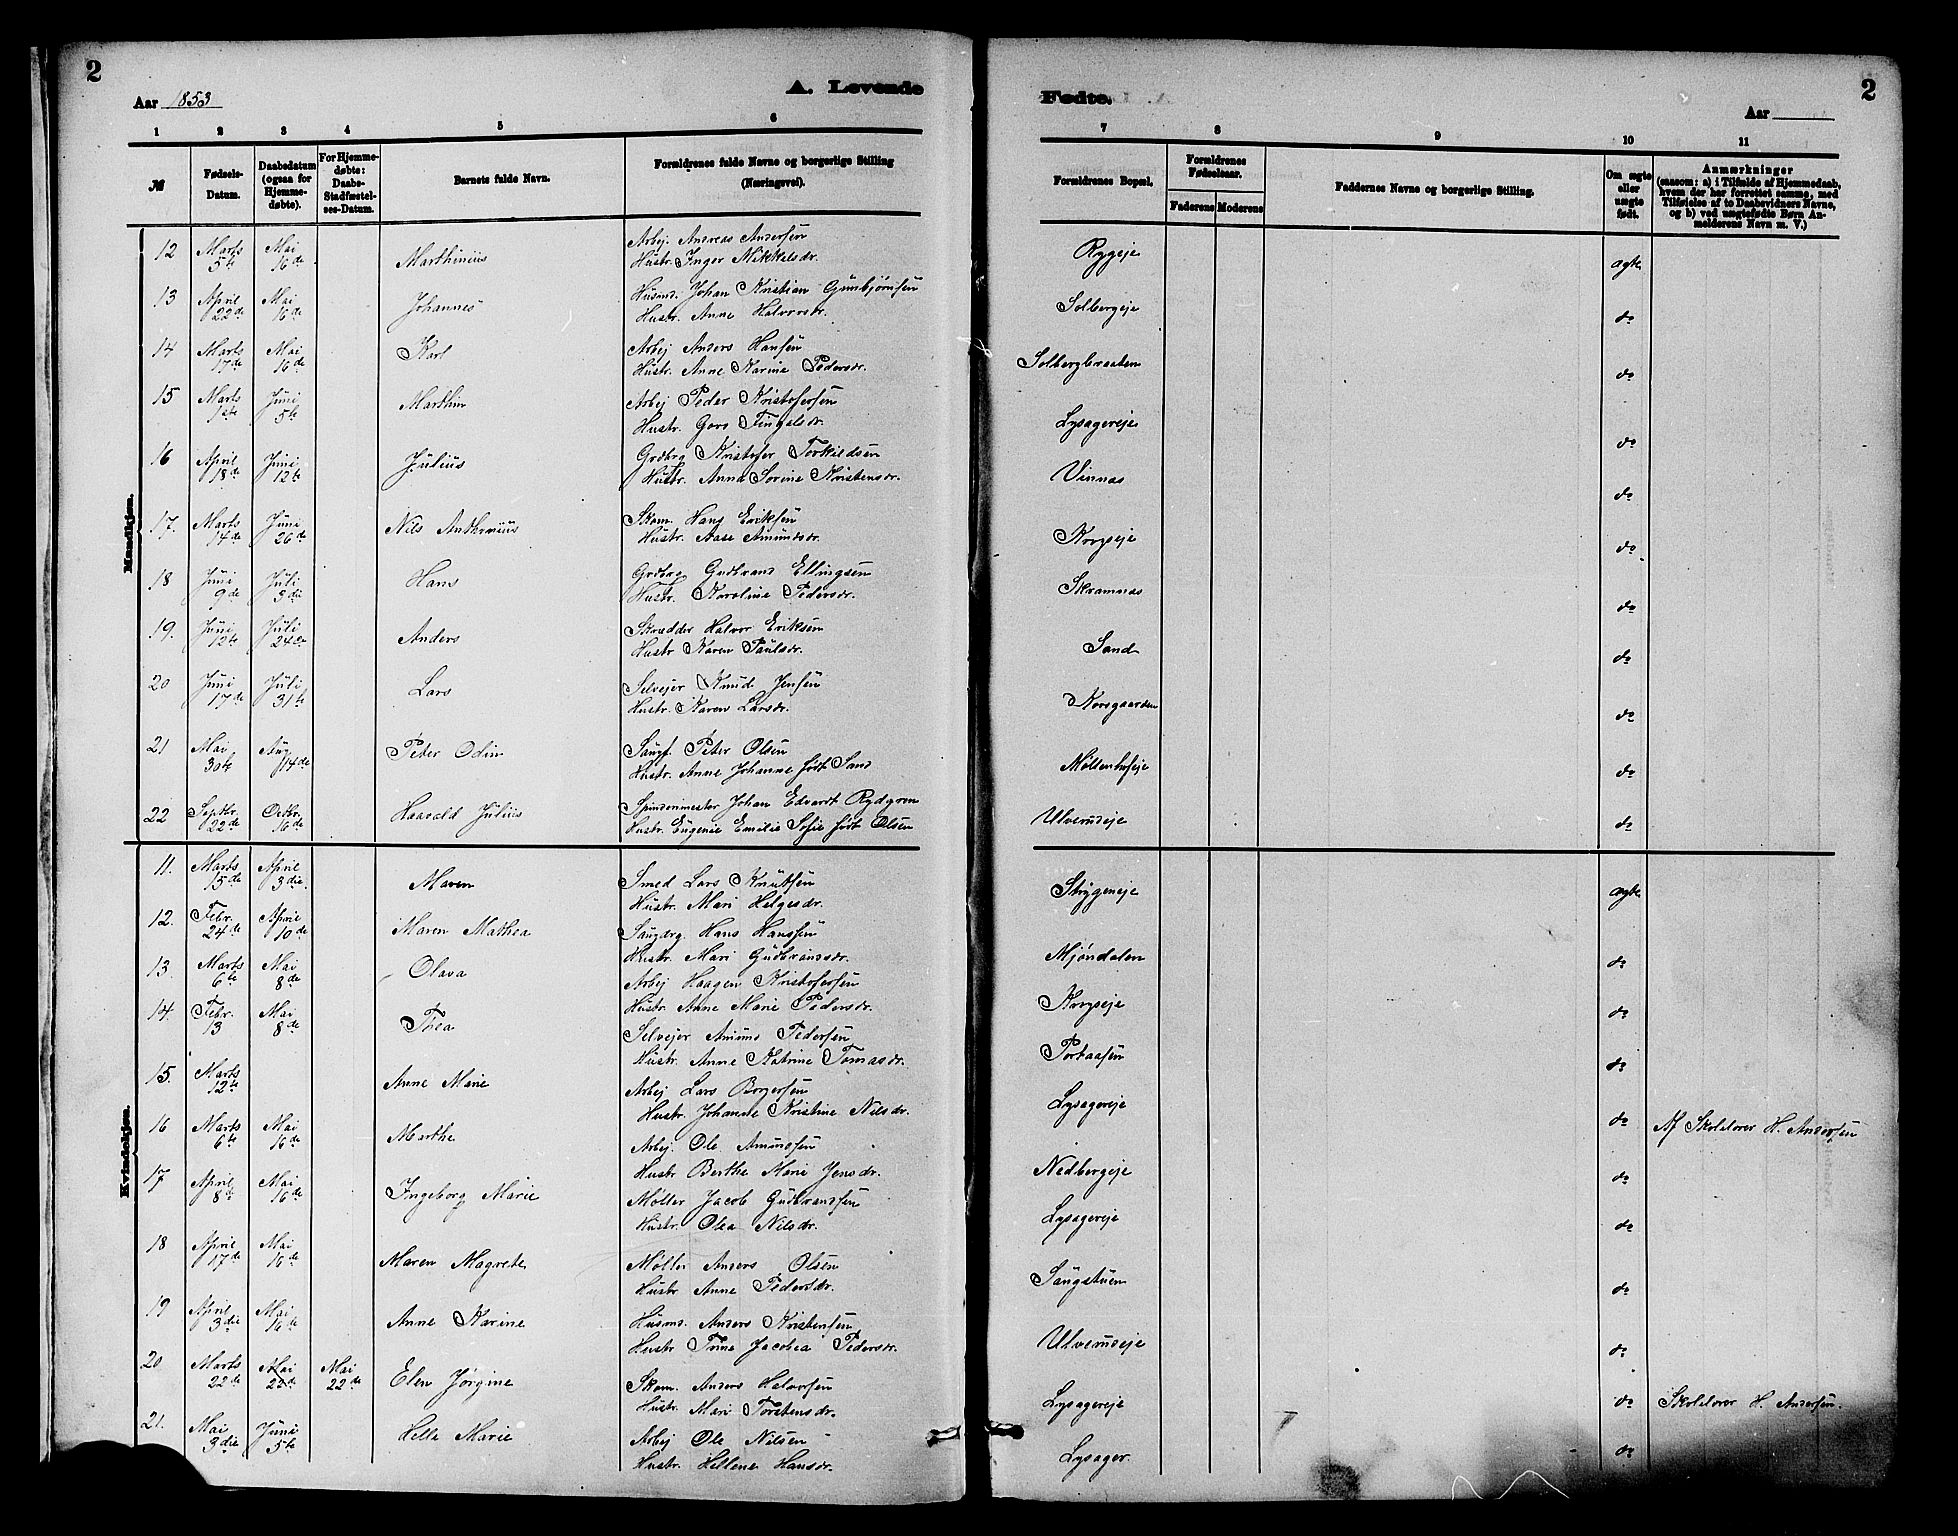 2
Aar 1853
A. Levende
1 2 3 4 5 6
№ Fødsels-Datum. Daabsdatum (ogsaa for Hjemmedøbte). For Hjemmedøbte: Daabs-Stadfæstelses-Datum. Barnets fulde Navn. Forældrenes fulde Navne og borgerlige Stilling (Næringsvei).
Fødte.
Aar
2
7 8 9 10 11
Forældrenes Bopæl. Forældrenes Fødselsaar. Faderens Moderens Faddernes Navne og borgerlige Stilling. Om ægte eller uægte født. Anmærkninger (saasom: a) i Tilfælde af Hjemmedaab, hvem der har forrettet samme, med Tilføielse af to Daabsvidners Navne, og b) ved uægtefødte Børn Anmelderens Navn m. V.)
Mandkjøn.
12 Marts 5te Mai 16de Marthinius Arbej. Andreas Andersen Rygeje ægte
Hustr. Inger Nikkelsdr.
13 April 22de Mai 16de Johannes Husmd. Johan Kristian Gunbjørnsen Solbergeje do
Hustr. Anne Halvorsdr.
14 Marts 17de Mai 16de Karl Arbej Anders Hansen Solbergbraaten do
Hustr. Anne Karine Pedersdr.
15 Marts 1ste Juni 5te Marthin Arbej Peder Kristofersen Lysagereje do
Hustr. Goro Fingalsdr.
16 April 18de Juni 12te Julius Grdbrg Kristofer Torkildsen Vinnas do
Hustr. Anna Sorine Kristensdr.
17. Marts 14de Juni 26de Nils Anthonius Skom. Hans Eriksen Korpseje do
Hustr. Aase Amundsdr
18 Juni 9de Juli 3die Hans Grdbrg Gudbrand Ellingsen Skramnas do
Hustr. Karoline Pedersdr.
19. Juni 12te Juli 24de Anders Skrædder Halvor Eriksen Sand do
Hustr Karen Paulsdr.
20 Juni 17de Juli 31te Lars Selvejer Knud Jensen Korsgaarden do
Hustr. Karen Larsdr.
21 Mai 30te Aug. 14de Peter Odin Saugf. Peter Olsen Møllenhofeje do
Hustr. Anne Johanne født Sand
22 Septbr. 22de Octbr. 16de Haavald Julius Spindemester Johan Edvardt Rydgren Ulverudeje do
Hustr. Eugenie Emilie Sofie født Olsen
Kvindekjøn.
11. Marts 15de April 3die. Maren Smed Lars Knutsen Stryggeneje ægte
Hustr. Mari Helgesdr.
12. Febr. 24de April 10de Maren Mathea Saugdrg Hans Hanssen Mjøndalen do
Hustr. Mari Gudbransdr.
13 Marts 6te Mai 8de Olava Arbej Haagen Kristofersen Korpseje do
Hustr. Anne Marie Pedersdr.
14. Febr. 13 Mai 8de Thea Selvejer Amund Pedersen Portaasen do
Hustr. Anne Katrine Tomasdr.
15. Marts 12te Anne Marie Arbej Lars Borgersen Lysagereje do Af Skolelærer H. Andersen
Hustr. Johanne Kristine Nilsdr.
16 Marts 6te Mai 16de Marthe Arbej. Ole Amundsen Nedbergeje do
Hustr Berthe Marie Jensdr.
17 April 8de Mai 16de Ingeborg Marie Møller Jacob Gudbrandsen Lysagereje do
Hustr. Olea Nilsdr.
18 April 17de Mai 16de Maren Magrete Møller Anders Olsen Saugstuen do
Hustr Anne Pedersdr.
19 April 3die Mai 16de Anne Karine Husmd. Anders Kristensen Ulverudeje do
Hustr Trine Jacobea Pedersdr.
20 Marts 22de Mai 22de Mai 22de Elen Jørgine Skom. Anders Halvorsen Lysagereje do Skolelærer H. Andersen.
Hustr. Mari Torstensdr.
21. Mai 3die Juni 5te Helle Marie Arbej Ole Nilsen Lysager. do
Hustr. Hellene Hansdr.